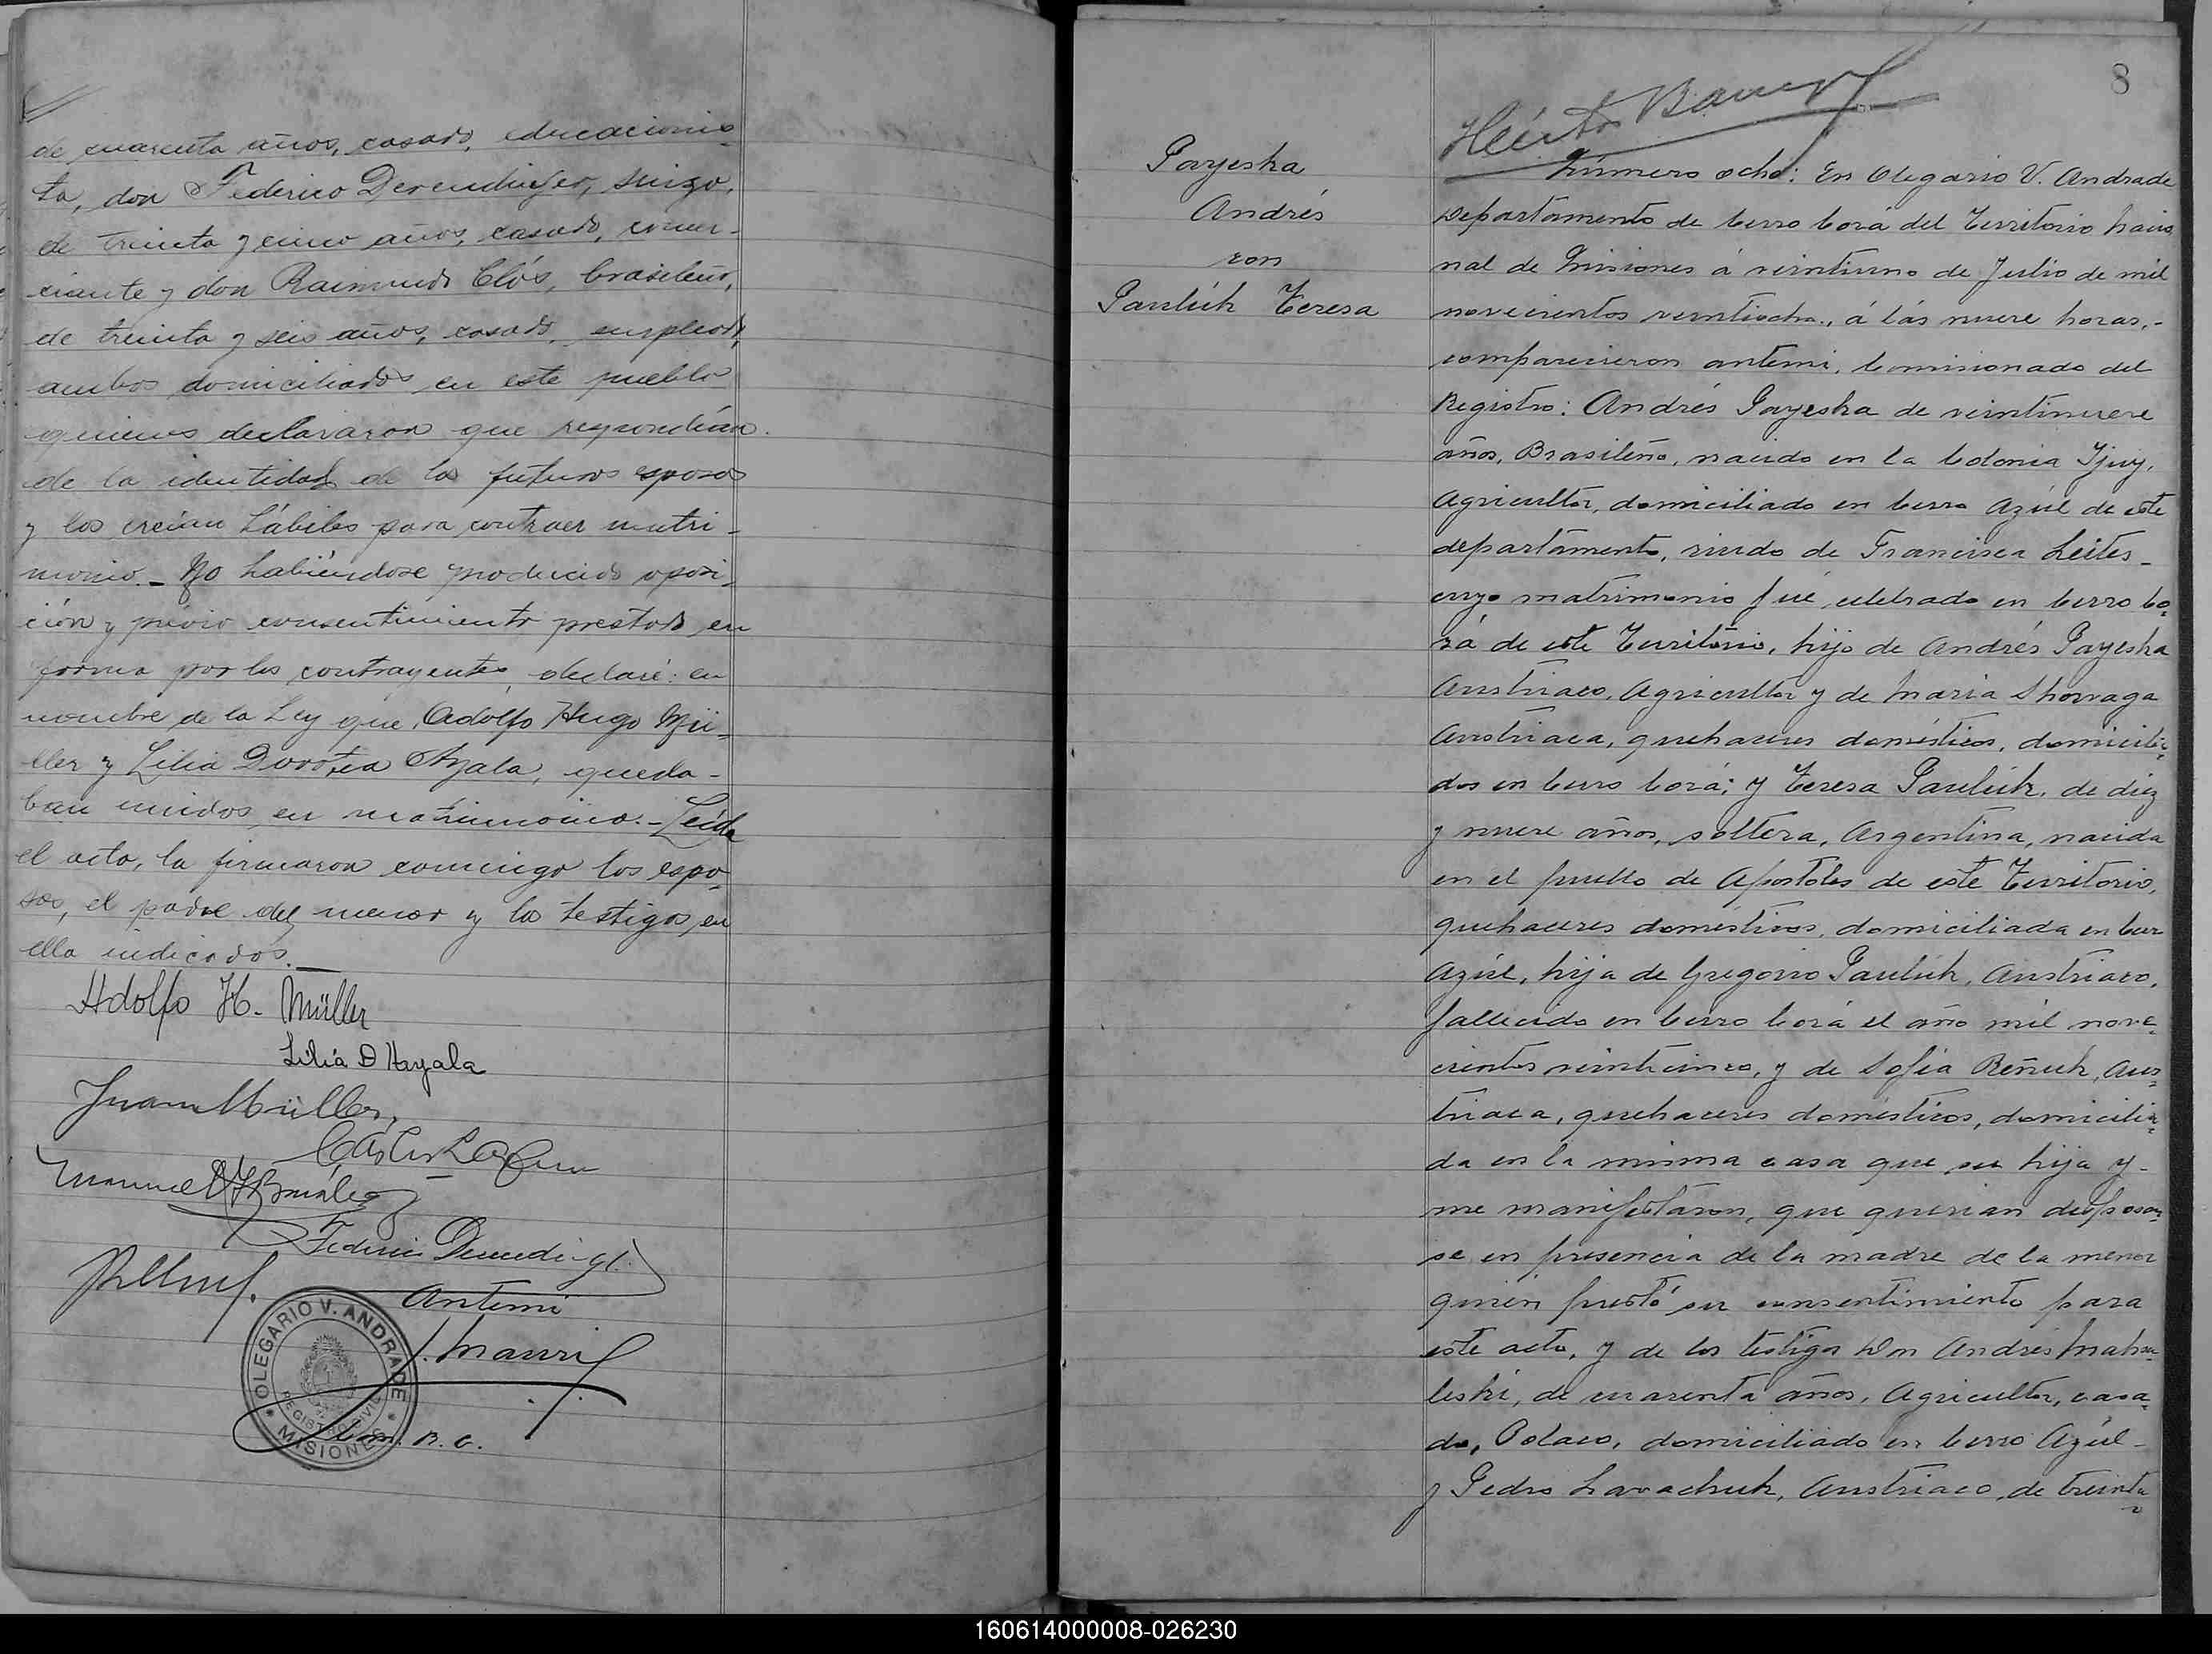 de cuarenta años, casado, educacionis-
ta, don Federico Derendinger, suizo,
de treinta y cinco años, casado, comer-
ciante y don Raimundo Clós, brasileño,
de treinta y seis años, casado, empleado,
ambos domiciliados en este pueblo
quienes declararon que respondían
de la identidad de los futuros esposos
y los creían hábiles para contraer matri-
monio.- No habiéndose producido oposi-
ción y previo consentimiento prestado en
forma por los contrayentes, declaré: en
nombre de la Ley que, Adolfo Hugo Mü-
ller y Lilia Dorotea Ayala, queda-
ban unidos en matrimonio.- Leída
el acta, la firmaron conmigo los espo-
sos, el padre del menor y los testigos en
ella indicados.
Adolfo H. Müller
Lilia D Ayala
Juan Müller
Federico
Antemi
J. Mauri
OLEGARIO V. ANDRADE
REGISTRO CIVIL
* MISIONES *
Com. R. C.
8
Payeska
Andrés
con
Paulúk Teresa
Héctor
Número ocho: En Olegario V. Andrade
Departamento de Cerro Corá del Territorio Nacio
nal de Misiones á veintiuno de Julio de mil
novecientos veintiocho, á lás nueve horas,-
comparecieron antemi, Comisionado del
Registro: Andrés Payeska de veintinueve
años, Brasileño, nacido en la Colonia Yjuy,
Agricultor, domiciliado en Cerro Azúl de este
departamento, viudo de Francisca Leites-
cuyo matrimonio fué celebrado en Cerro Co-
rá de este Territorio, hijo de Andrés Payeska
Austriaco, Agricultor y de Maria Skowaga
Austriaca, quehaceres domésticos, domicilia-
dos en Cerro Corá; y Teresa Paulúk, de diez
y nueve años, soltera, Argentina, nacida
en el pueblo de Apostoles de este Territorio,
quehaceres domésticos, domiciliada en Cerr
Azúl, hija de Gregorio Paulúk, Austriaco,
fallecido en Cerro Corá el año mil nove-
cientos veinticinco, y de Sofía Reñuk, Aus-
triaca, quehaceres domésticos, domicilia-
da en la misma casa que su hija y-
me manifestaron, que querian desposar
se en presencia de la madre de la menor
quien prestó su consentimiento para
este acto, y de los testigos Don Andrés Mahsa-
leski, de cuarenta años, Agricultor, casa-
do, Polaco, domiciliado en Cerro Azúl-
y Pedro Lavachuk, Austriaco, de treinta
160614000008-026230